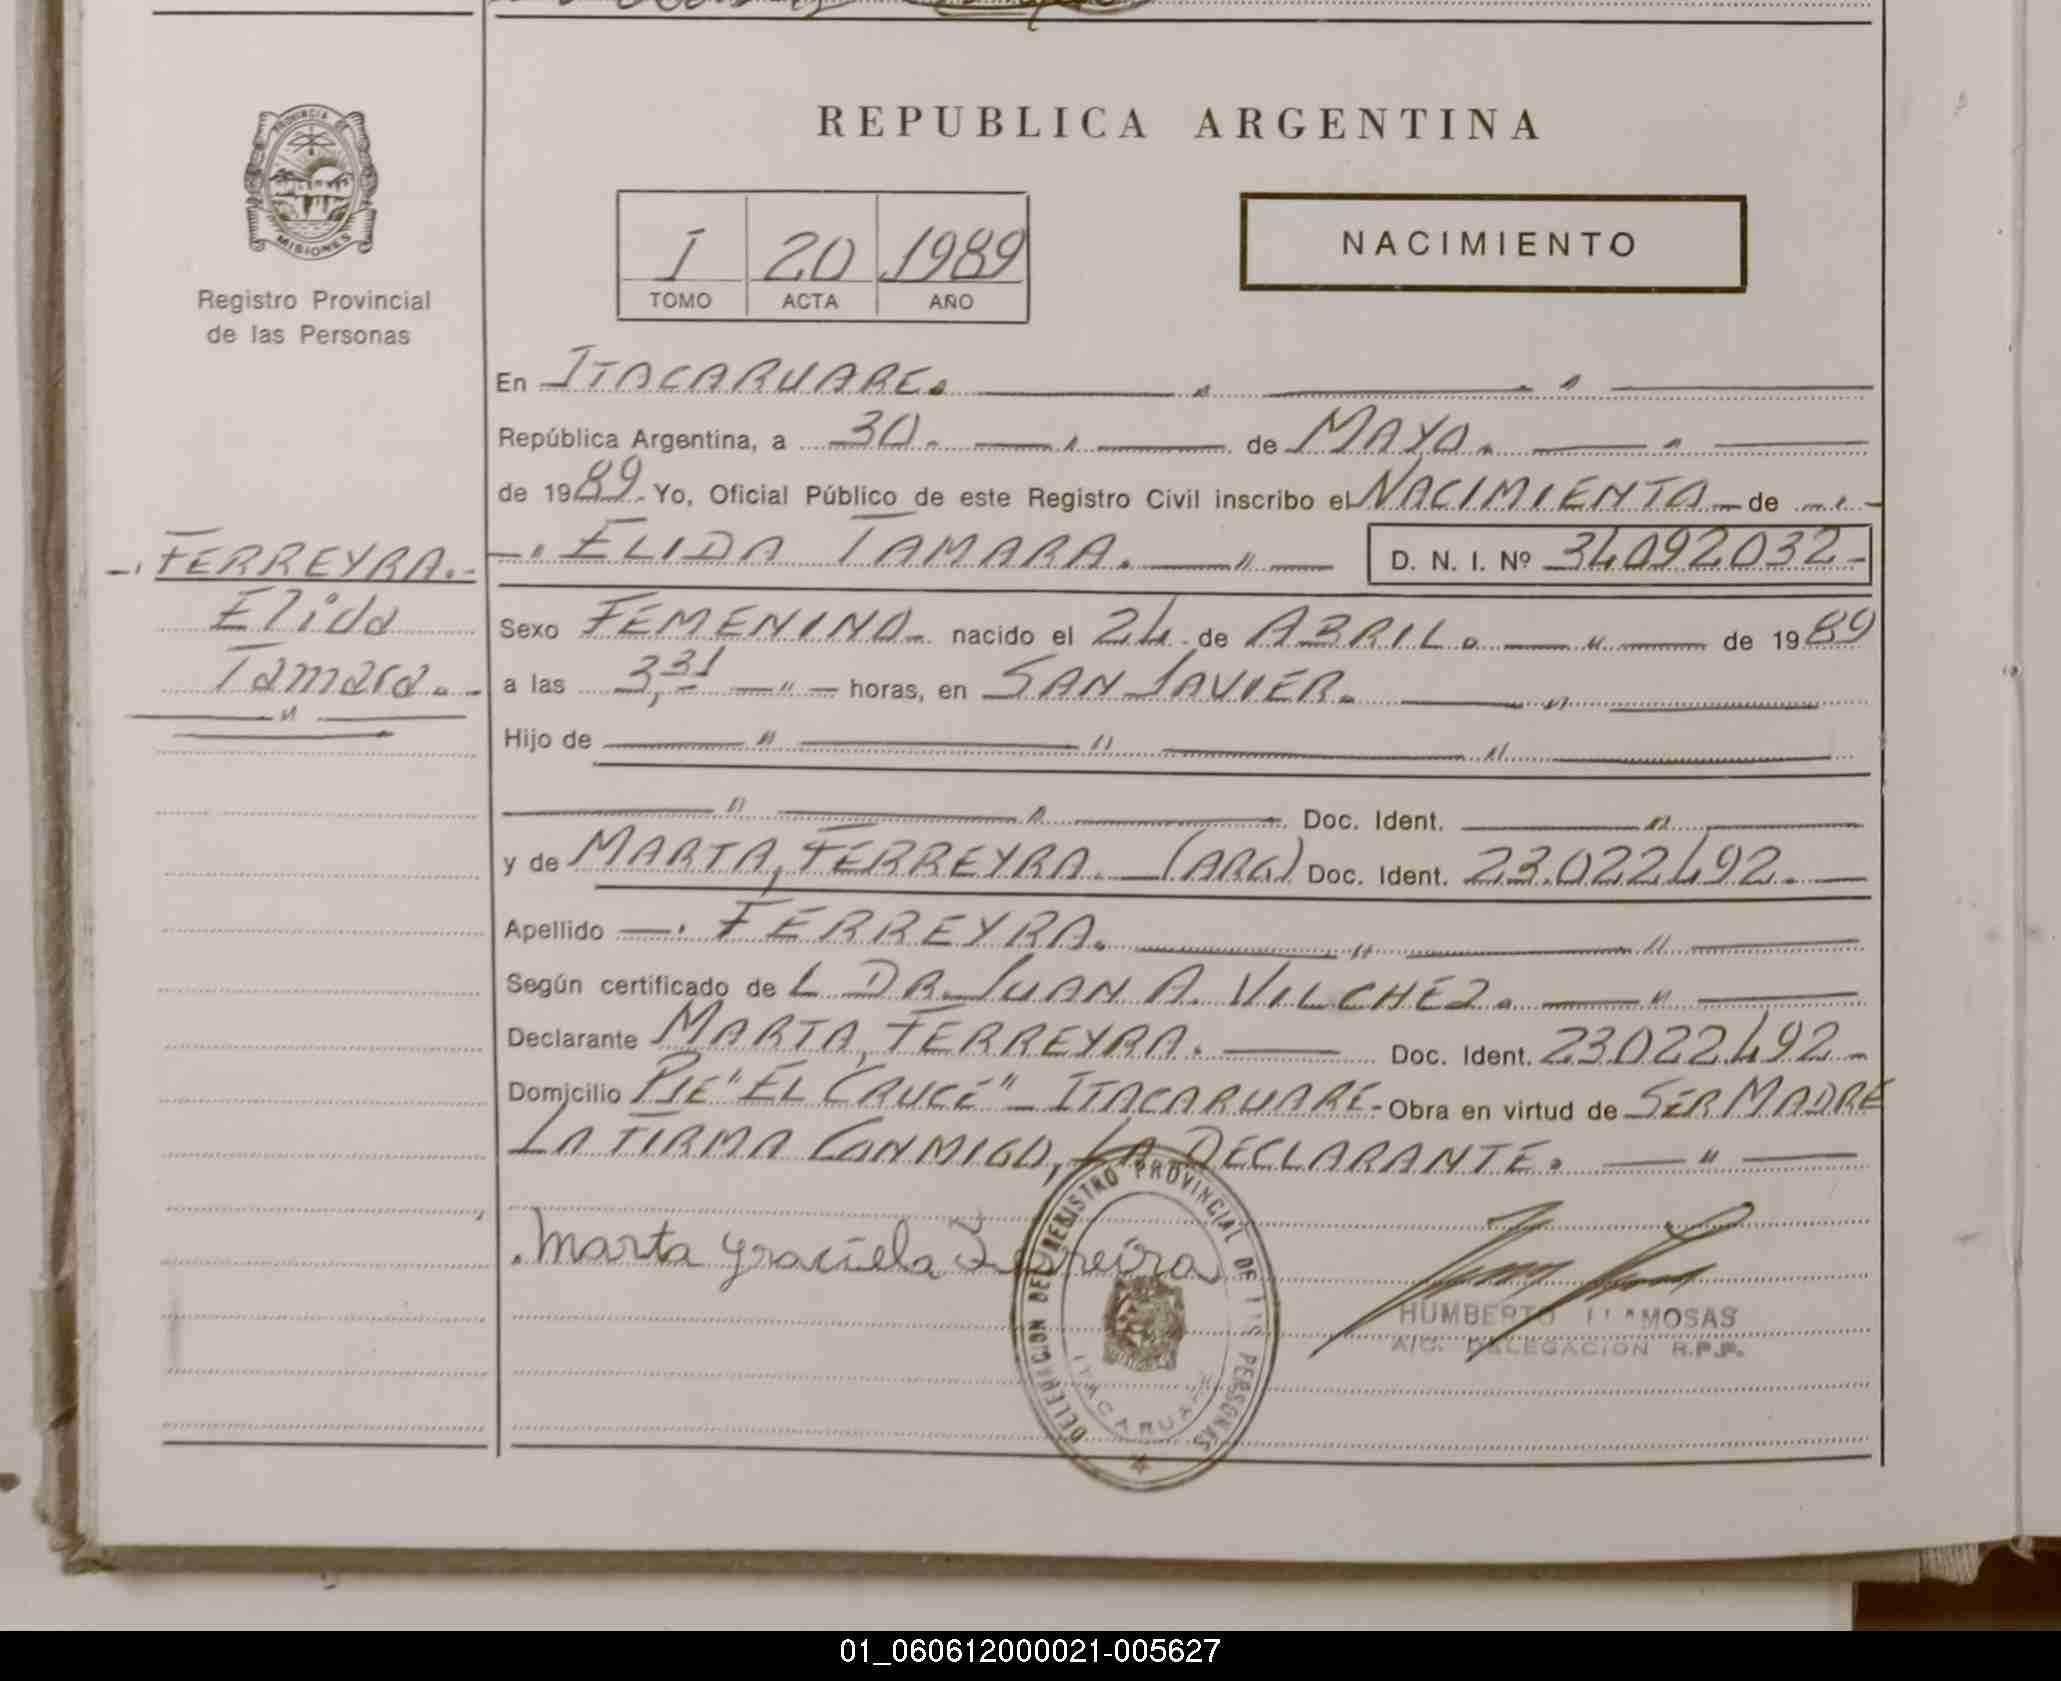 REPUBLICA ARGENTINA
PROVINCIA DE
MISIONES
Registro Provincial
de las Personas
I 20 1989
TOMO ACTA AÑO
NACIMIENTO
En ITACARUARE.
República Argentina, a 30. de MAYO.
de 1989. Yo, Oficial Público de este Registro Civil inscribo el NACIMIENTO de
ELIDA TAMARA. D. N. I. Nº 34092032-
FERREYRA.-
Elida
Tamara.-
Sexo FEMENINO. nacido el 24 de ABRIL. de 1989
a las 3,31 horas, en SAN JAVIER.
Hijo de
Doc. Ident.
y de MARTA, FERREYRA. (ARG) Doc. Ident. 23.022492.
Apellido FERREYRA.
Según certificado de L DR. JUAN A. VILCHEZ.
Declarante MARTA, FERREYRA. Doc. Ident. 23022492-
Domicilio PJE "EL CRUCE" - ITACARUARE- Obra en virtud de SER MADRE
LA FIRMA CONMIGO, LA DECLARANTE.
Marta Graciela Ferreira
DELEGACION DEL REGISTRO PROVINCIAL DE LAS PERSONAS
ITACARUARE
HUMBERTO LLAMOSAS
A/C. DELEGACION R.P.P.
01_060612000021-005627